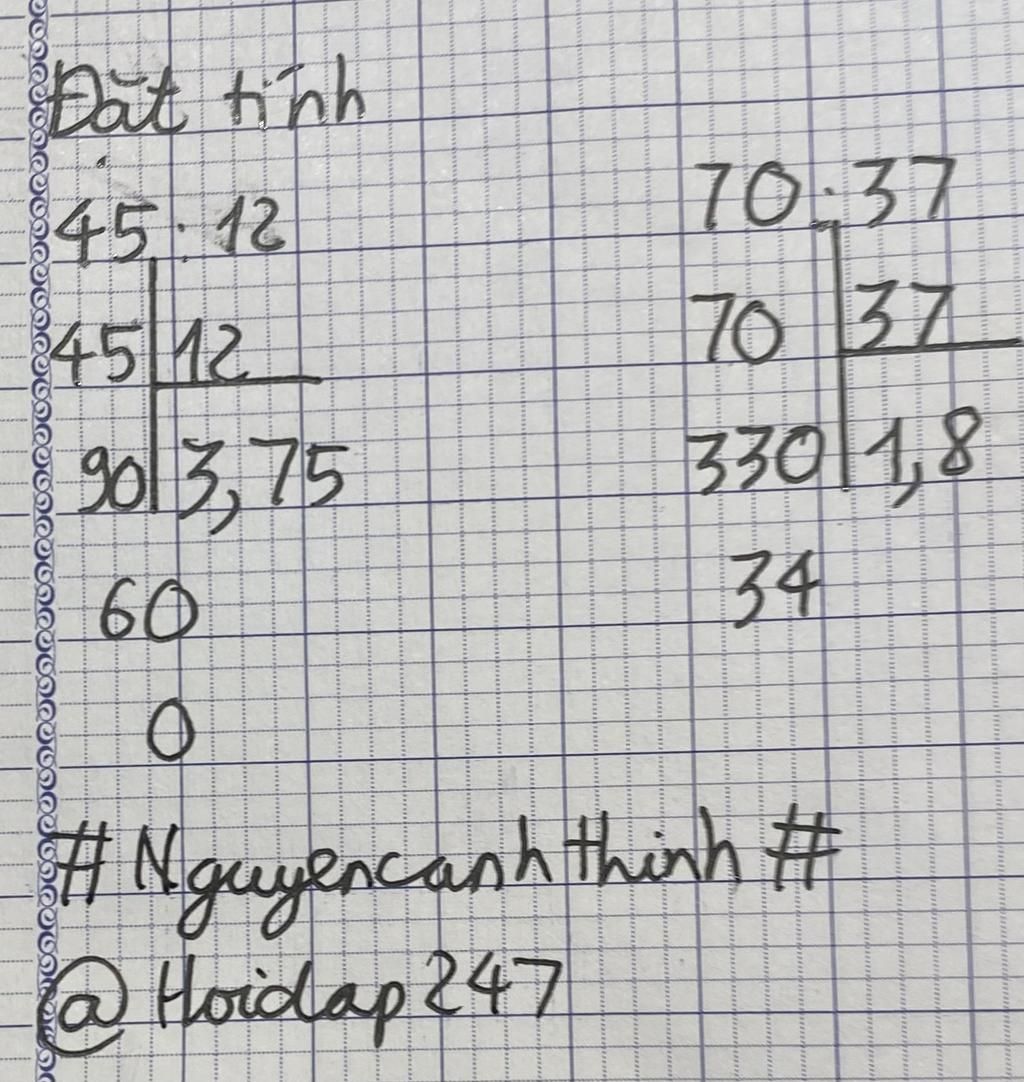 Đặt tính
45 : 12
45 12
90 3,75
60
0
70 : 37
70 37
330 1,8
34
# Nguyencanhthinh #
@ Hoidap247